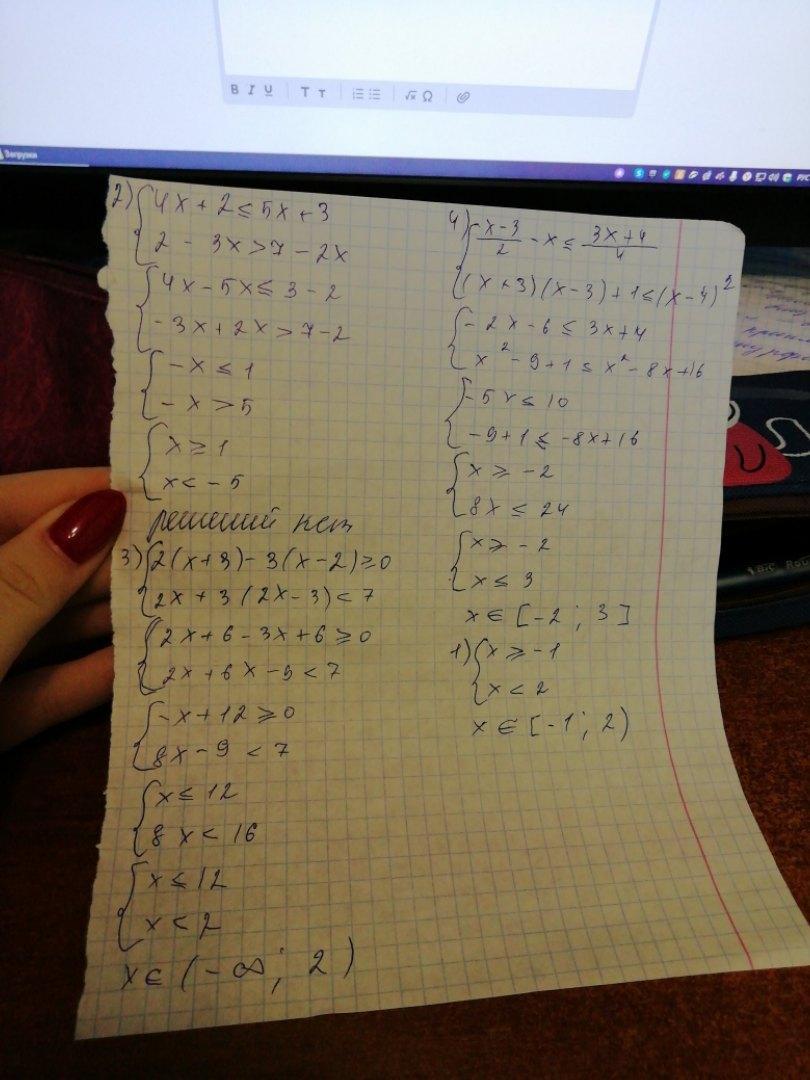 B I U TT √x Ω
Загрузки
РУС
2) { 4x + 2 ≤ 5x + 3
2 - 3x > 7 - 2x
{ 4x - 5x ≤ 3 - 2
- 3x + 2x > 7 - 2
{ -x ≤ 1
-x > 5
{ x ≥ 1
x < - 5
решений нет
3) { 2(x+3) - 3(x-2) ≥ 0
2x + 3(2x-3) < 7
{ 2x + 6 - 3x + 6 ≥ 0
2x + 6x - 9 < 7
{ -x + 12 ≥ 0
8x - 9 < 7
{ x ≤ 12
8x < 16
{ x ≤ 12
x < 2
x ∈ (-∞; 2)
4) { (x-3)/2 - x ≤ (3x+4)/4
(x+3)(x-3)+1 ≤ (x-4)²
{ - 2x - 6 ≤ 3x+4
x² - 9+1 ≤ x² - 8x+16
{ - 5x ≤ 10
-9+1 ≤ -8x+16
{ x ≥ -2
8x ≤ 24
{ x ≥ - 2
x ≤ 3
x ∈ [-2; 3]
1) { x ≥ -1
x < 2
x ∈ [-1; 2)